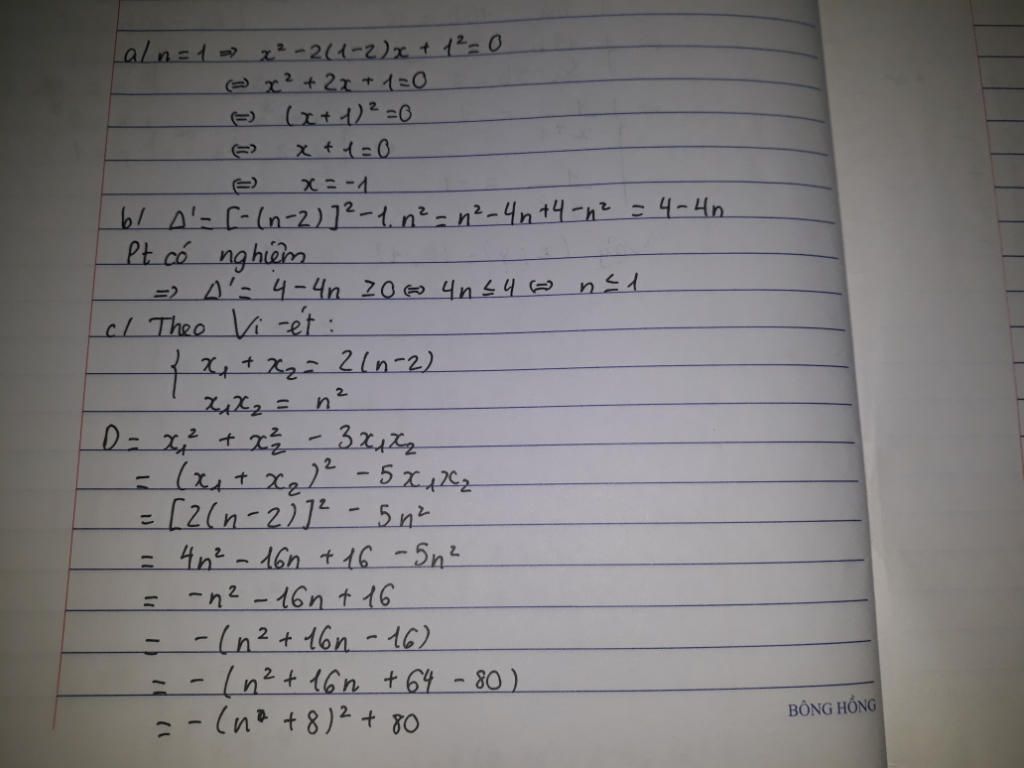 a/ n = 1 => x² - 2(1-2)x + 1² = 0
<=> x² + 2x + 1 = 0
<=> (x + 1)² = 0
<=> x + 1 = 0
<=> x = -1
b/ Δ' = [-(n-2)]² - 1.n² = n² - 4n + 4 - n² = 4 - 4n
Pt có nghiệm
=> Δ' = 4 - 4n ≥ 0 <=> 4n ≤ 4 <=> n ≤ 1
c/ Theo Vi-ét :
{ x₁ + x₂ = 2(n-2)
x₁x₂ = n²
D = x₁² + x₂² - 3x₁x₂
= (x₁ + x₂)² - 5x₁x₂
= [2(n-2)]² - 5n²
= 4n² - 16n + 16 - 5n²
= -n² - 16n + 16
= -(n² + 16n - 16)
= -(n² + 16n + 64 - 80)
= -(n + 8)² + 80
BÔNG HỒNG